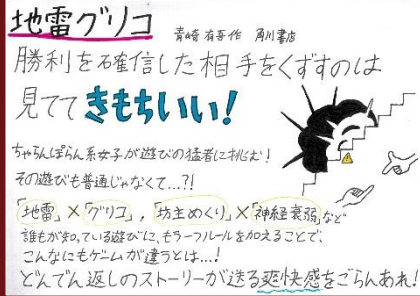 地雷グリコ 青崎有吾作 角川書店
勝利を確信した相手をくずすのは
見てて きもちいい!
ちゃらんぽらん系女子が遊びの猛者に挑む!
その遊びも普通じゃなくて…?!
「地雷」×「グリコ」,「坊主めくり」×「神経衰弱」など
誰もが知っている遊びに、もう一つルールを加えることで、
こんなにもゲームが違うとは…!
どんでん返しのストーリーが送る爽快感をごらんあれ!